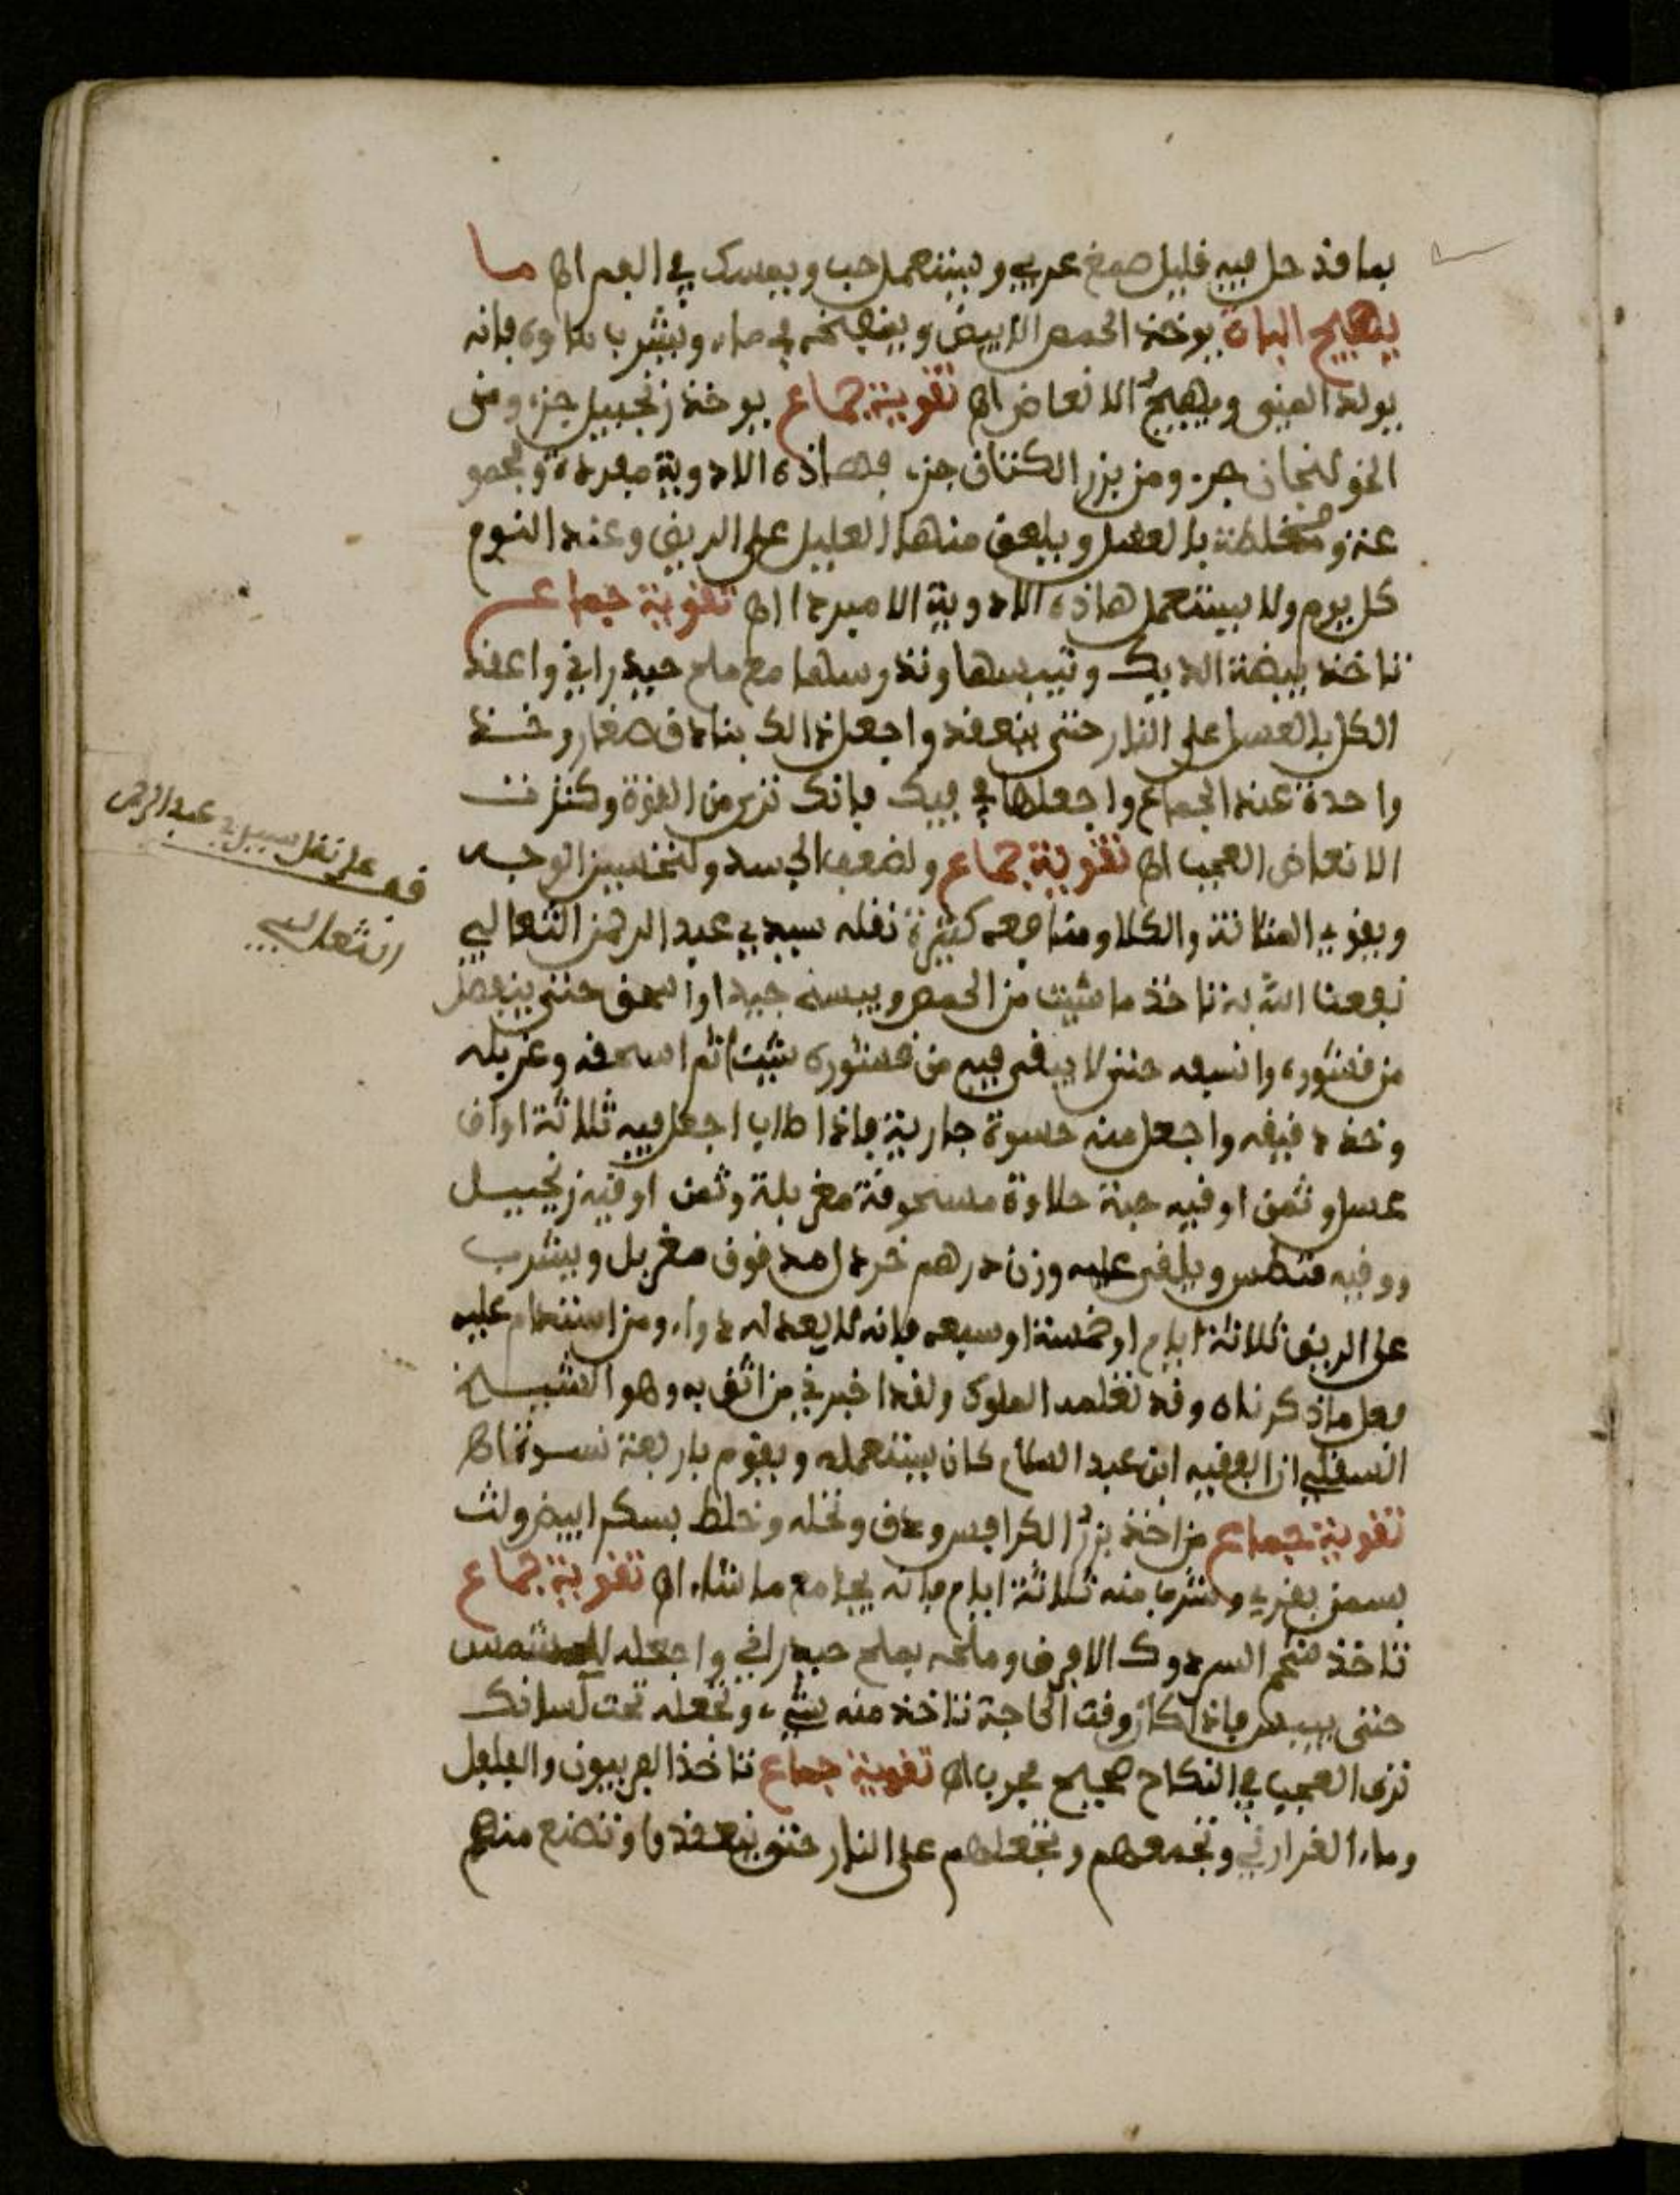 بما قد حل فيه قليل صمغ عربي ويستعمل حب ويمسك في الفم اه ما
يهيج الباه يوخذ الحمص الابيض وينفخه في ماء ويشرب ماوه فانه
يولد المني ويهيج الانعاض اه تقوية جماع يوخذ زنجبيل جزء ومن
الخولنجان جزء ومن بزر الكتان جزء فهاذه الادوية مفردة
مخلطة بالعسل ويلعق منها العليل على الريق وعند النوم
كل يوم ولا يستعمل هاذه الادوية الا مبردا اه تقوية جماع
تاخذ بيضة الديك وتيبسها وتدرسها مع ملح حيدراني واعقد
الكل بالعسل على النار حتى ينعقد واجعل ذالك بنادق صغار وخذ
واحدة عند الجماع واجعلها في فيك فانك ترى من القوة وكثرت
الانعاض العجب اه تقوية جماع ولضعف الجسد ولتحسين الوجه
ويقوي المثانة والكلا ومنافعه كثيرة نقله سيدي عبد الرحمن الثعالبي
نفعنا الله به تاخذ ما شيت من الحمص ويبسه جيدا واسحق حتى ينفصل
من قشوره وانسفه حتى لا يبقى فيه من قشوره شيئا ثم اسحقه وغربله
وخذ دقيقه واجعل منه حسوة جارية فاذا طاب اجعل فيه ثلاثة اواق
عسل وثمن اوقيه حبة حلاوة مسحوقة مغربلة وثمن اوقيه زنجبيل
ووقيه ويلقى عليه وزن درهم خرد مدقوق مغربل ويشرب
على الريق ثلاثة ايام او خمسة او سبعه فانه لا يعدله دواء ومن استدام عليه
فعل ماذكرناه وقد نقلها الملوك ولقد اخبرني من اثق به وهو الشيخ
ان الفقيه ابن عبد السلام كان يستعمله ويقوم باربعة نسوة اه
تقوية جماع من اخذ بزر الكرافس ودق ونخله وخلط بسكر ابيض ولت
بسمن بقري وشرب منه ثلاثة ايام فانه يجامع ما شاء اه تقوية جماع
تاخذ السردوك الافرق وملحه بملح حيدراني واجعله للشمس
حتى ييبس فاذا كان وقت الحاجة تاخذ منه شيء وتجعله تحت لسانك
ترى العجب في النكاح صحيح مجرب اه تقوية جماع تاخذ الفربيون والفلفل
وماء وتجمعهم وتجعلهم على النار حتى ينعقدوا وتصنع منهم
قف على نقل سيدي عبد الرحمن
الثعالبي